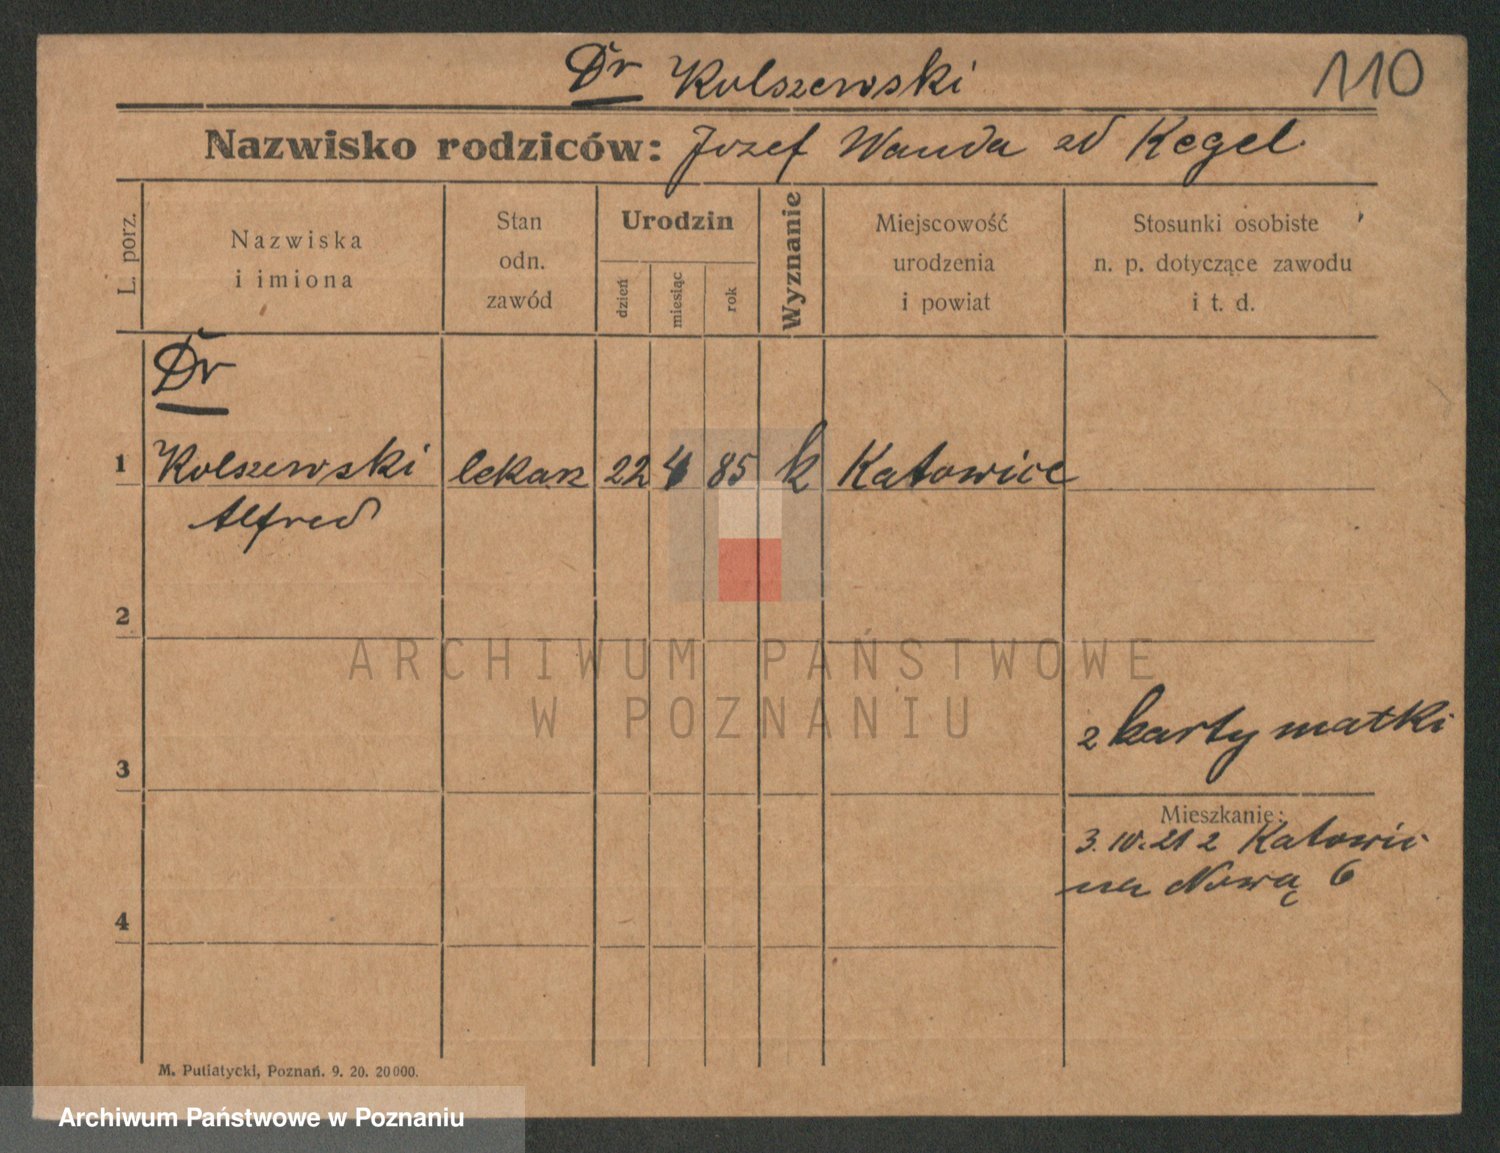 Dr Kolszewski
110
Nazwisko rodziców: Jozef Wanda zd Kegel
L. porz.
Nazwiska
i imiona
Stan
odn.
zawód
Urodzin
dzień
miesiąc
rok
Wyznanie
Miejscowość
urodzenia
i powiat
Stosunki osobiste
n. p. dotyczące zawodu
i t. d.
Dr
1 Kolszewski lekarz 22 4 85 k Katowice
Alfred
2
ARCHIWUM PAŃSTWOWE
W POZNANIU
z karty matki
3
Mieszkanie:
3. IV. 21 z Katowic
na Nową 6
4
M. Putiatycki, Poznań. 9. 20. 20000.
Archiwum Państwowe w Poznaniu